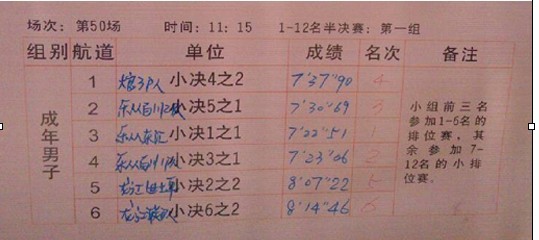 场次：第50场 时间：11：15 1-12名半决赛：第一组
组别 航道 单位 成绩 名次 备注
成年男子
1 小决4之2 7'37"90 4
2 小决5之1 7'30"69 3
3 小决1之1 7'22"51 1
4 小决3之1 7'23"06 2
5 小决2之2 8'07"22 5
6 小决6之2 8'14"46 6
小组前三名
参加1-6名的
排位赛，其
余参加7-
12名的小排
位赛.